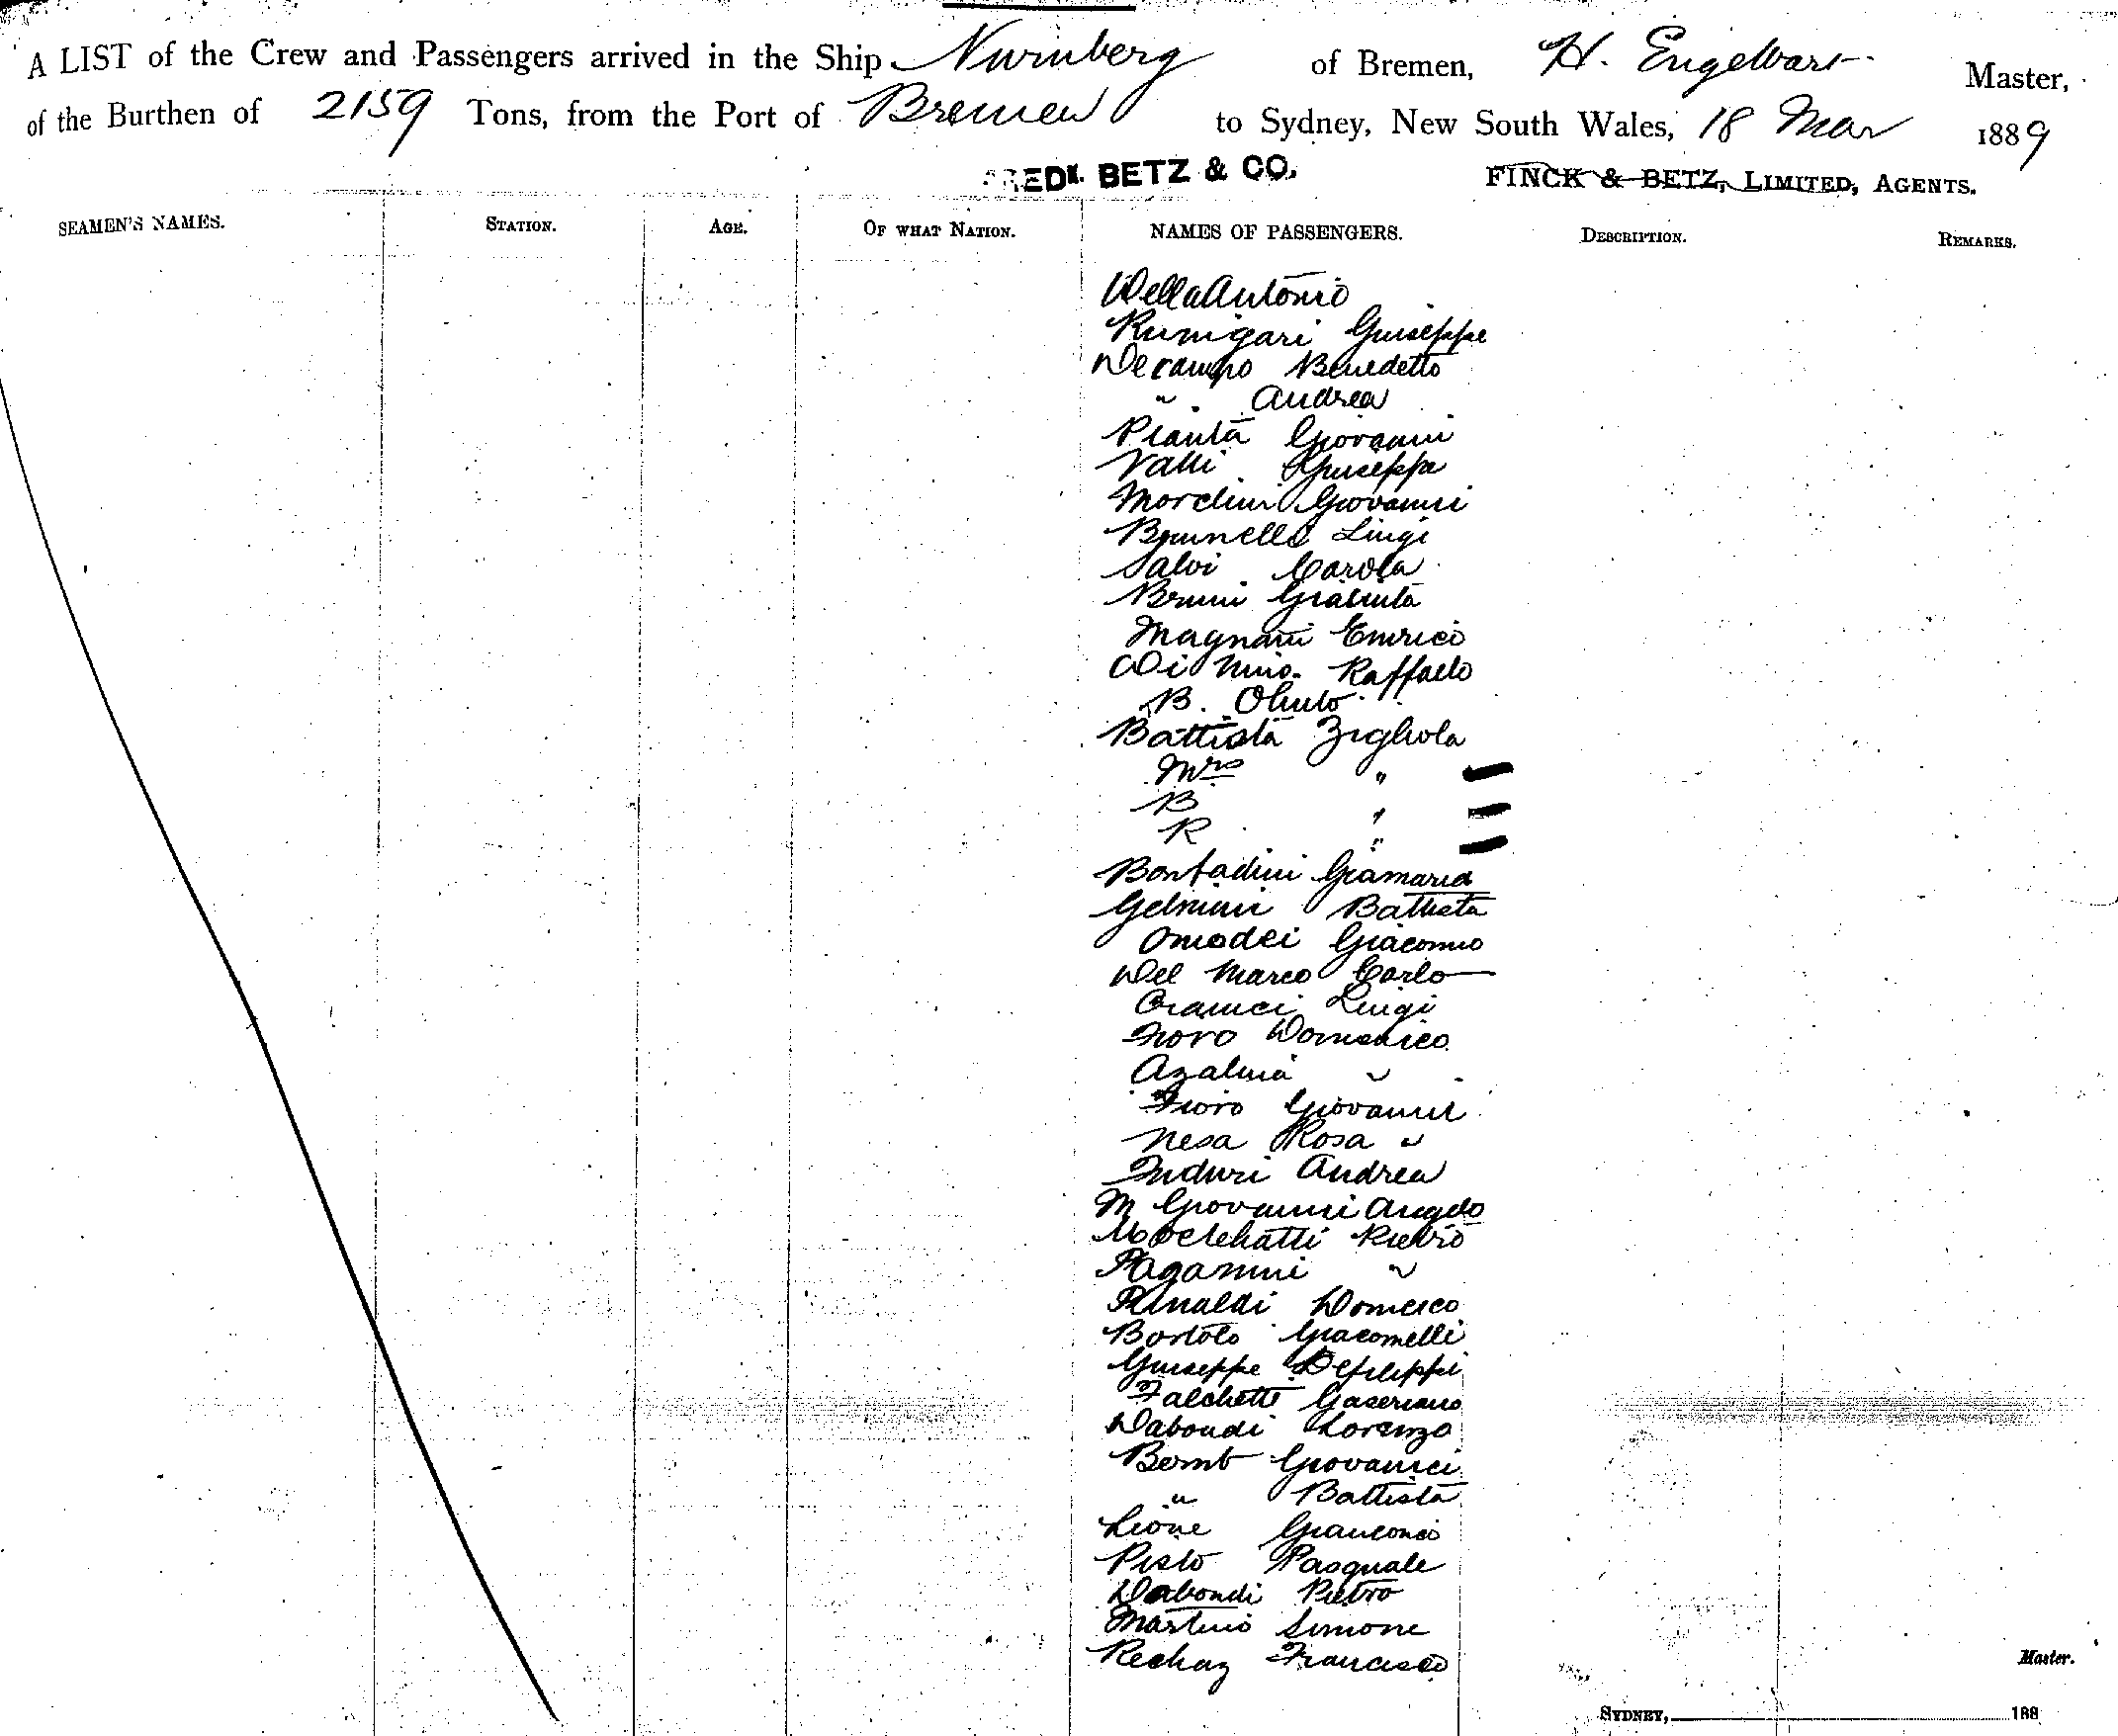 A LIST of the Crew and Passengers arrived in the Ship Nurnberg of Bremen, H. Engelbart Master,
of the Burthen of 2159 Tons, from the Port of Bremen to Sydney, New South Wales, 18 Mar 1889
FREDK. BETZ & CO. FINCK & BETZ, LIMITED, AGENTS.
SEAMEN'S NAMES. STATION. AGE. OF WHAT NATION. NAMES OF PASSENGERS. DESCRIPTION. REMARKS.
Della Antonio
Rumigari Guiseppe
Decampo Benedetto
" Andrea
Pianta Giovanni
Valli Giuseppe
Giovanni
Brunello Luigi
Salvi Carola
Bruni Giacinta
Magnani Enrico
Di Nino. Raffaelo
B. Olinto
Battista Zigliola
Mrs "
B "
R "
Bontadini Giamaria
Gelmini Battista
Omodei Giacomo
Del Marco Carlo
Luigi
Fioro Domenico
Azalina "
Fioro Giovanni
Nesa Rosa "
Induri Andrea
M Giovanni Angelo
Pietro
Paganini "
Rinaldi Domenico
Bortolo Giacomelli
Guiseppe Defilippi
Falchetti
Dabondi Lorenzo
Giovanni
" Battista
Lione
Pisto Pasquale
Dabondi Pietro
Martino Simone
Rechaz Francisco
Master.
SYDNEY, 188